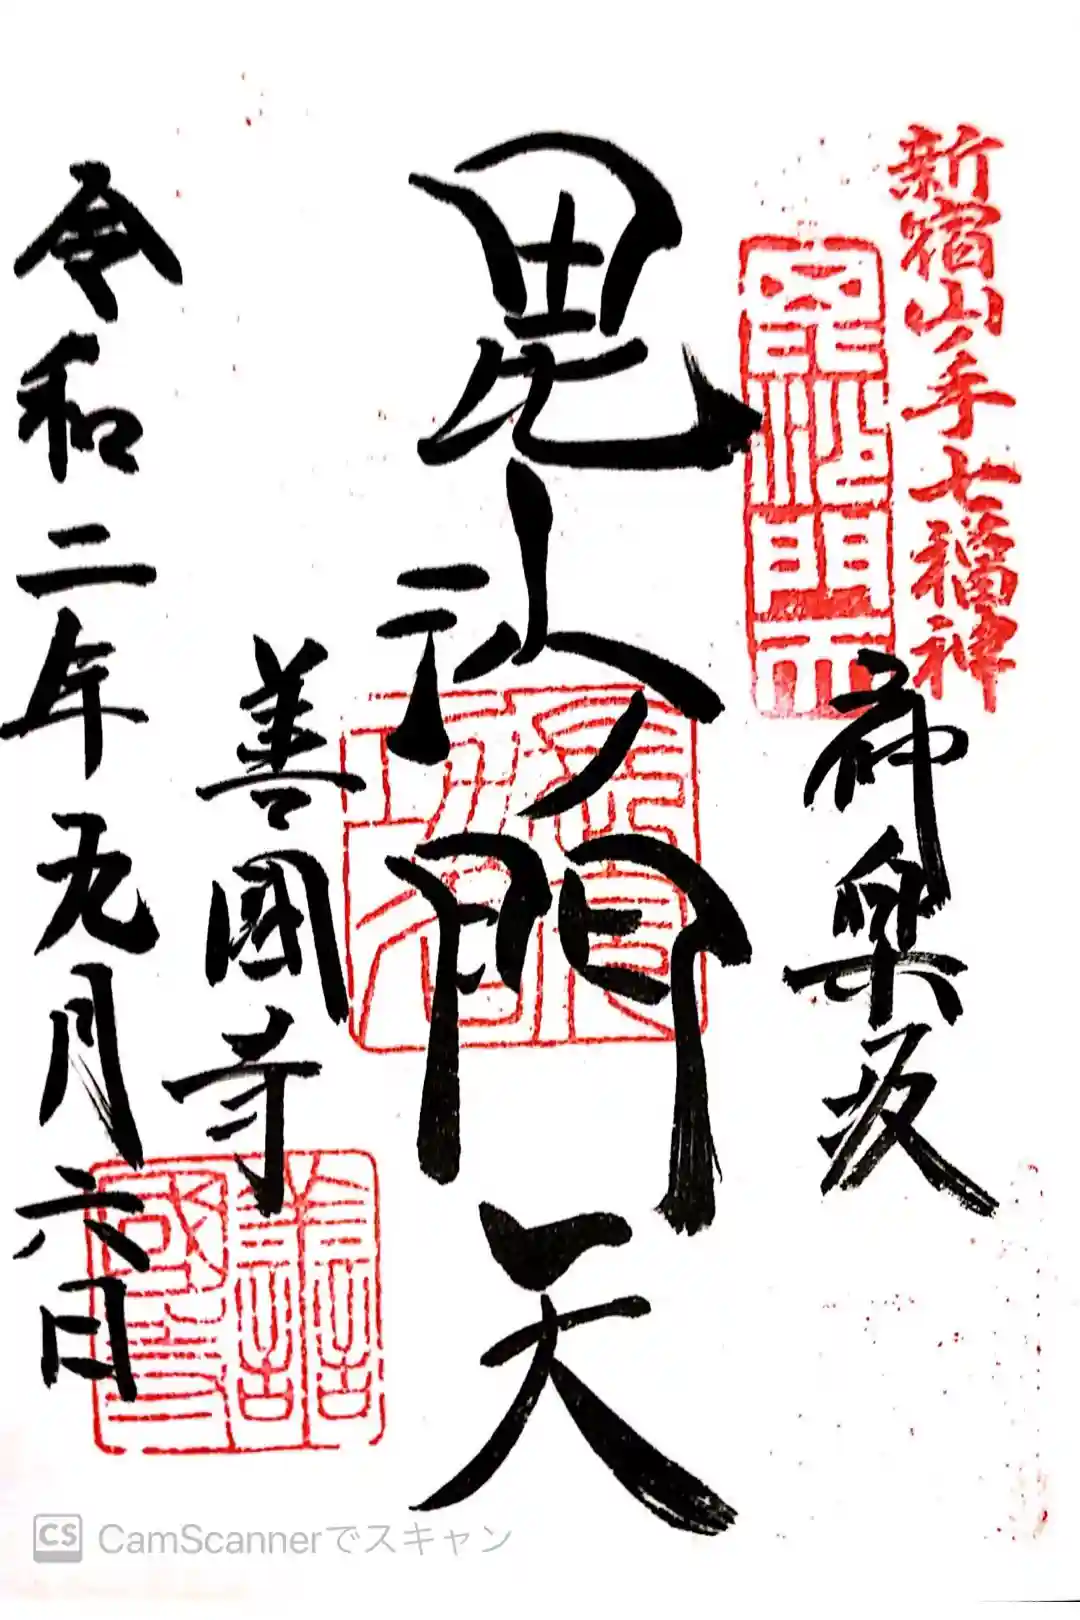 新宿山ノ手七福神
神楽坂
毘沙門天
毘沙門天
善國寺
善國寺
令和二年九月六日
CS CamScannerでスキャン